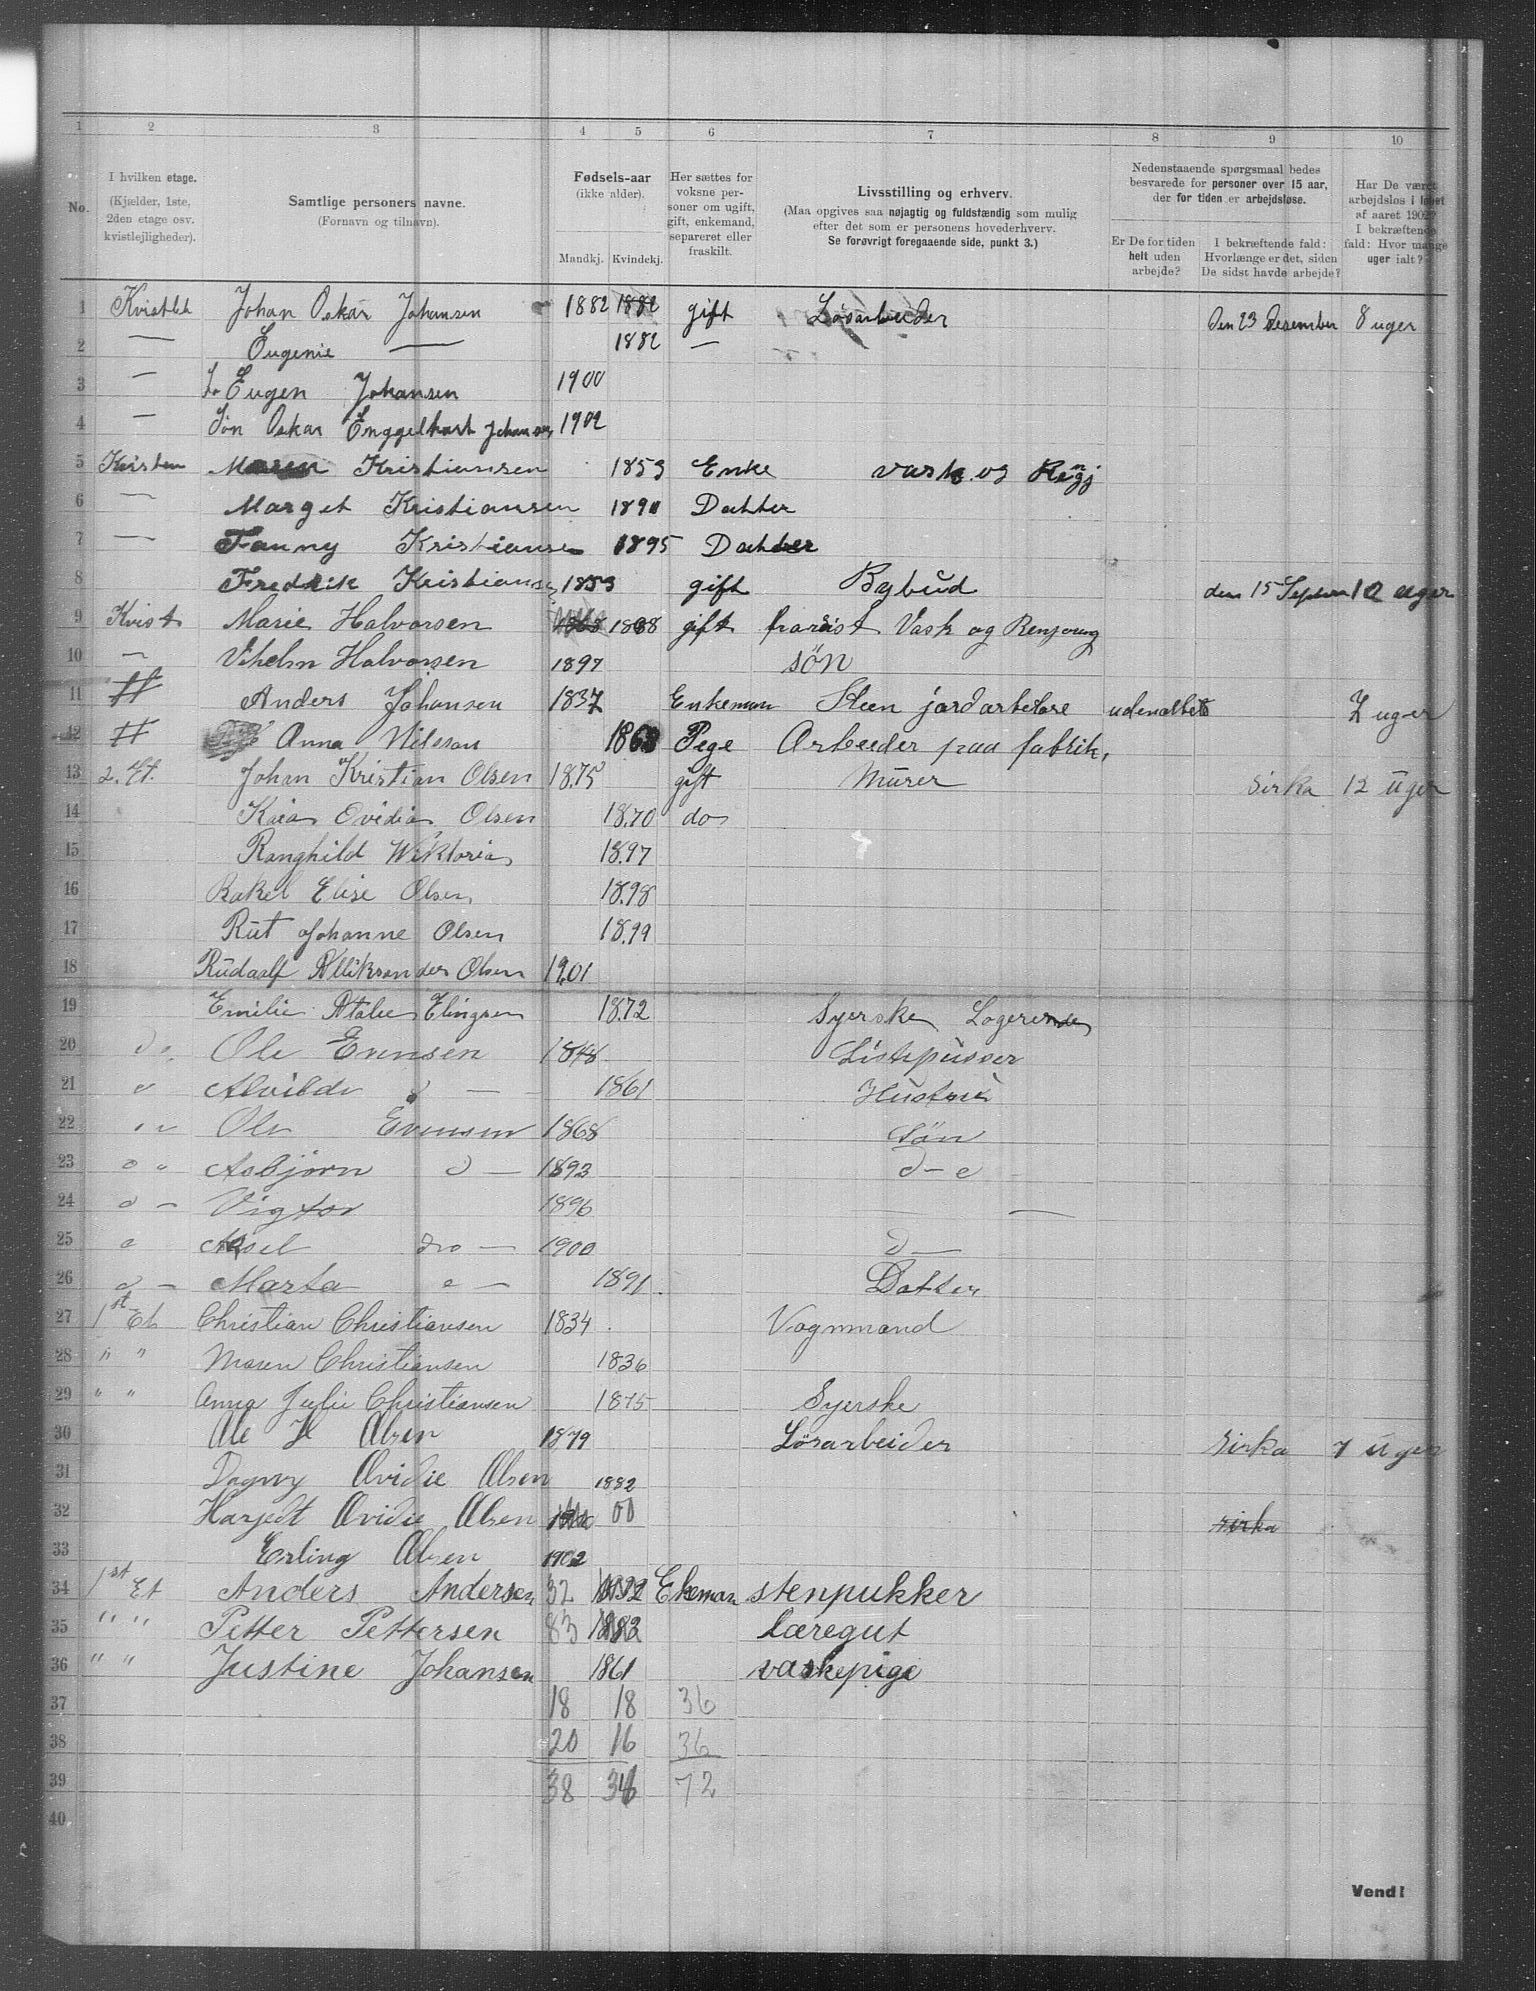 1 2 3 4 5 6 7 8 9 10
No.
I hvilken etage.
(Kjælder, 1ste,
2den etage osv.
kvistlejligheder).
Samtlige personers navne.
(Fornavn og tilnavn).
Fødsels-aar
(ikke alder).
Mandkj. Kvindekj.
Her sættes for
voksne per-
soner om ugift,
gift, enkemand,
separeret eller
fraskilt.
Livsstilling og erhverv.
(Maa opgives saa nøjagtig og fuldstændig som mulig
efter det som er personens hovederhverv.
Se forøvrigt foregaaende side, punkt 3.)
Nedenstaaende spørgsmaal bedes
besvarede for personer over 15 aar,
der for tiden er arbejdsløse.
Er De for tiden
helt uden
arbejde?
I bekræftende fald:
Hvorlænge er det, siden
De sidst havde arbejde?
Har De været
arbejdsløs i løbet
af aaret 1902?
I bekræftende
fald: Hvor mange
uger ialt?
1 Johan Oskar Johansen 1882 1882 gift Løsarbeider Den 23 Desember 8 uger
2 — Eugenie — 1882 —
3 — Eugen Johansen 1900
4 — Søn Oskar Enggelhart Johansen 1902
5 Kvisten Maren Kristiansen 1853 Enke vask og Rengj
6 — Marget Kristiansen 1890 Datter
7 — Fanny Kristiansen 1895 Datter
8 Fredrik Kristiansen 1853 gift Bybud den 15 Septem 10 uger
9 Kvist Marie Halvorsen 1868 1868 gift Vask og Renjoring
10 — Vihelm Halvorsen 1897 søn
11 # Anders Johansen 1837 Enkeman Steen jordarbeiare 7 uger
12 # Anna Nilsson 1868 Pege Arbeider paa fabrik.
13 2. Et. Johan Kristian Olsen 1875 gift Mürer sirka 12 uger
14 Kaia Ovidia Olsen 1870 do
15 Ranghild Wiktoria 1897
16 Rakel Elise Olsen 1898
17 Rüt Johanne Olsen 1899
18 Rüdaalf Alliksander Olsen 1901
19 Emilie Atalie Elingsen 1872 Syerske Logerende
20 do. Ole Evensen 1848 Listepüsser
21 Alvilde — 1861 Hustrü
22 Ole Evensen 1868 Søn
23 Asbjørn d — 1893 d — o
24 Vigtor 1896 —
25 Aksel do — 1900 d —
26 Marta — 1891 Datter
27 1st Et Christian Christiansen 1834 Vognmand
28 " " Maren Christiansen 1836
29 " " Anna Julie Christiansen 1875 Syerske
30 Ole H Olsen 1879 Løsarbeider sirka 7 uger
31 Dagny Ovidie Olsen 1882
32 Harjedt Ovidie Olsen 1900 00 sirka
33 Erling Olsen 1902
34 1st Et Anders Andersen 32 1832 Ekeman stenpukker
35 " " Petter Pettersen 83 1883 læregut
36 " " Justine Johansen 1861 vaskepige
37 18 18 36
38 20 16 36
39 38 34 72
40
Vend!